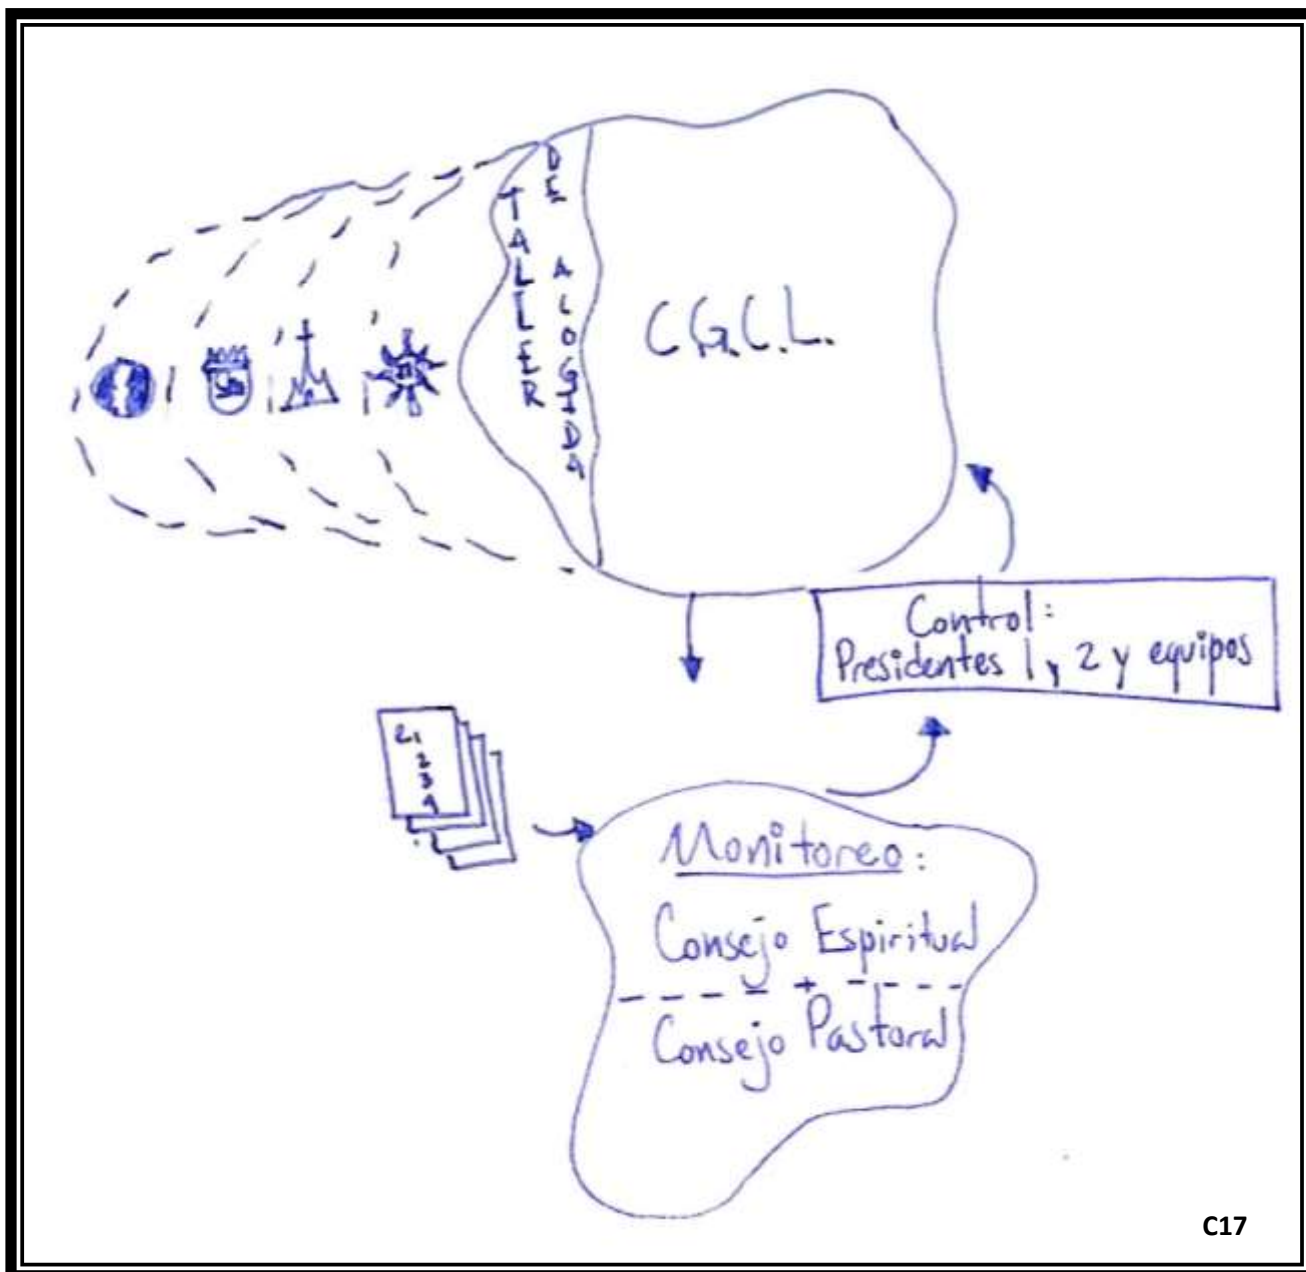 TALLER
DE ACOGIDA
C.G.C.L.
Control:
Presidentes 1 y 2 y equipos
1
2
3
4
Monitoreo:
Consejo Espiritual
Consejo Pastoral
C17